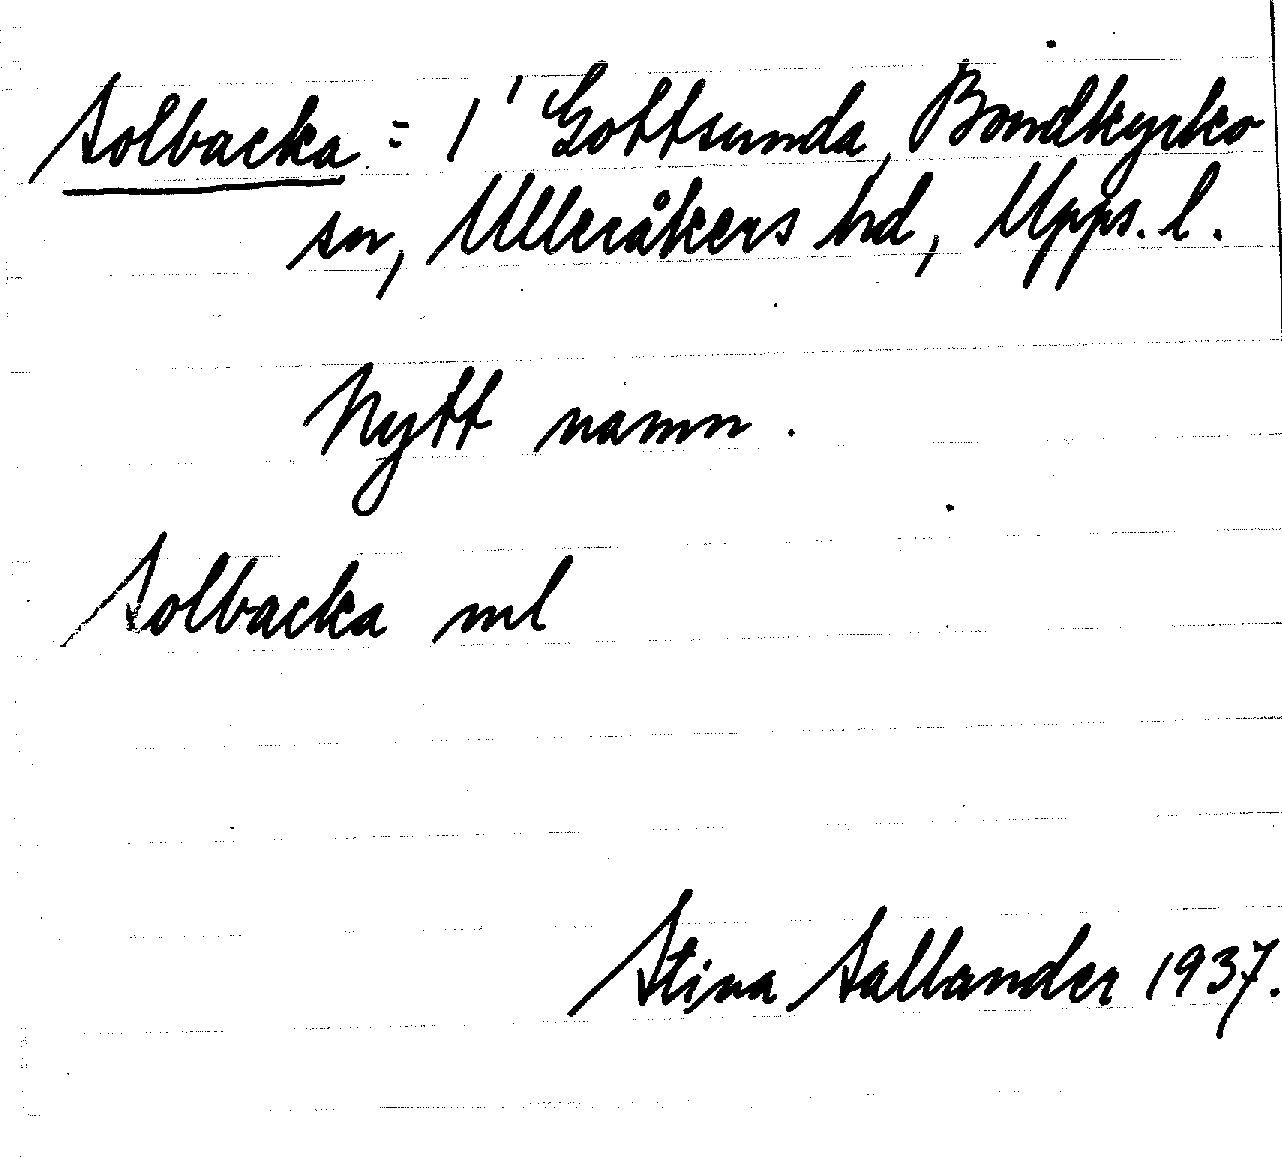 Solbacka = 1' Gottsunda, Bondkyrko
sn, Ulleråkers hd, Upps. l.
Nytt namn.
Solbacka ml
Stina Sallander 1937.